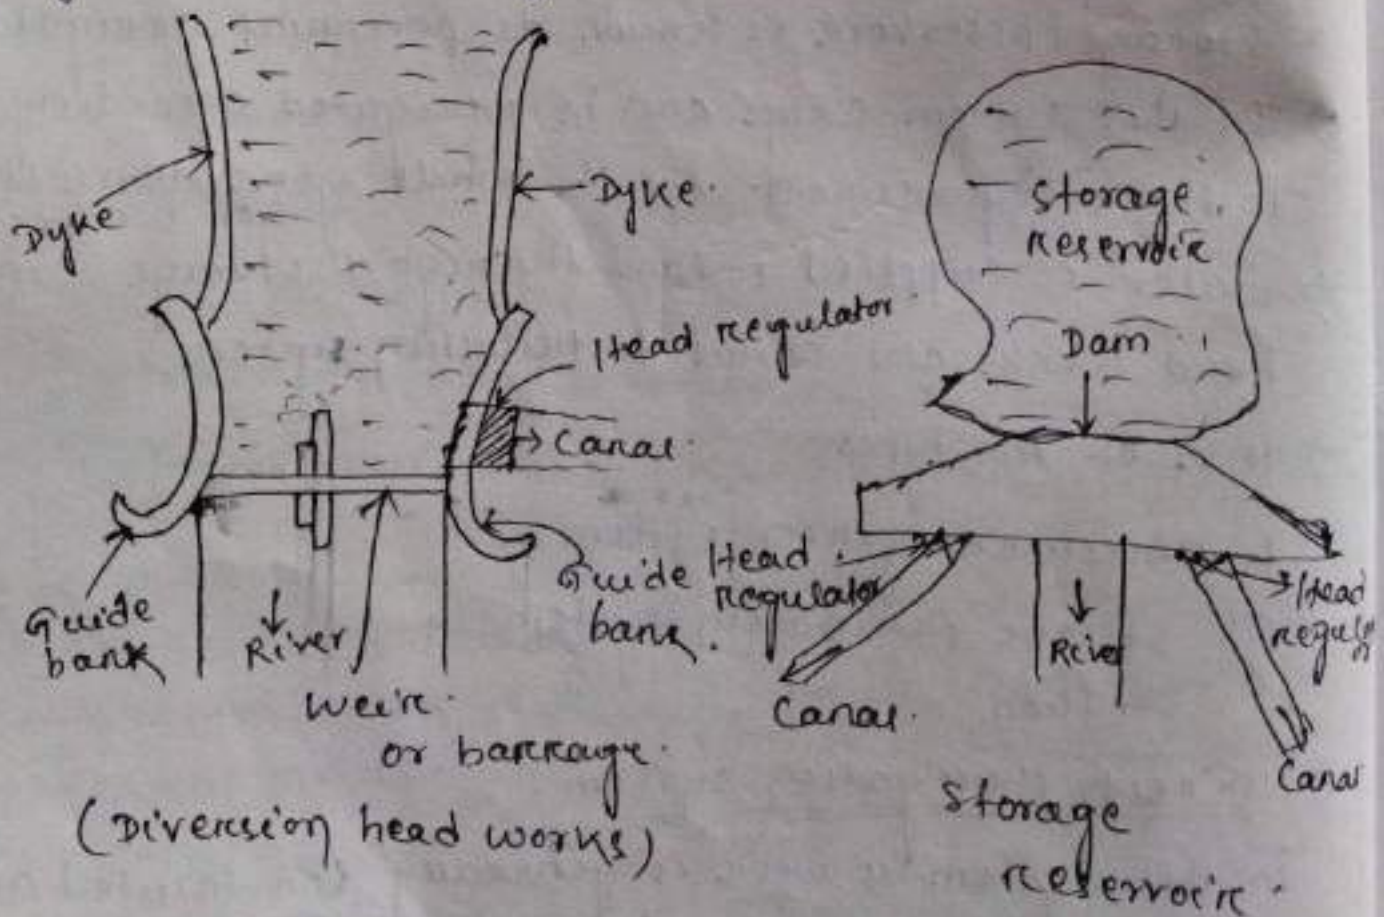 Dyke
Dyke.
Head regulator
Canal.
Guide
bank
Guide
bank.
River
Weir.
or barrage.
(Diversion head works)
Storage
reservoir
Dam
Head
regulator
Head
regulator
River
Canal.
Canal
Storage
reservoir.